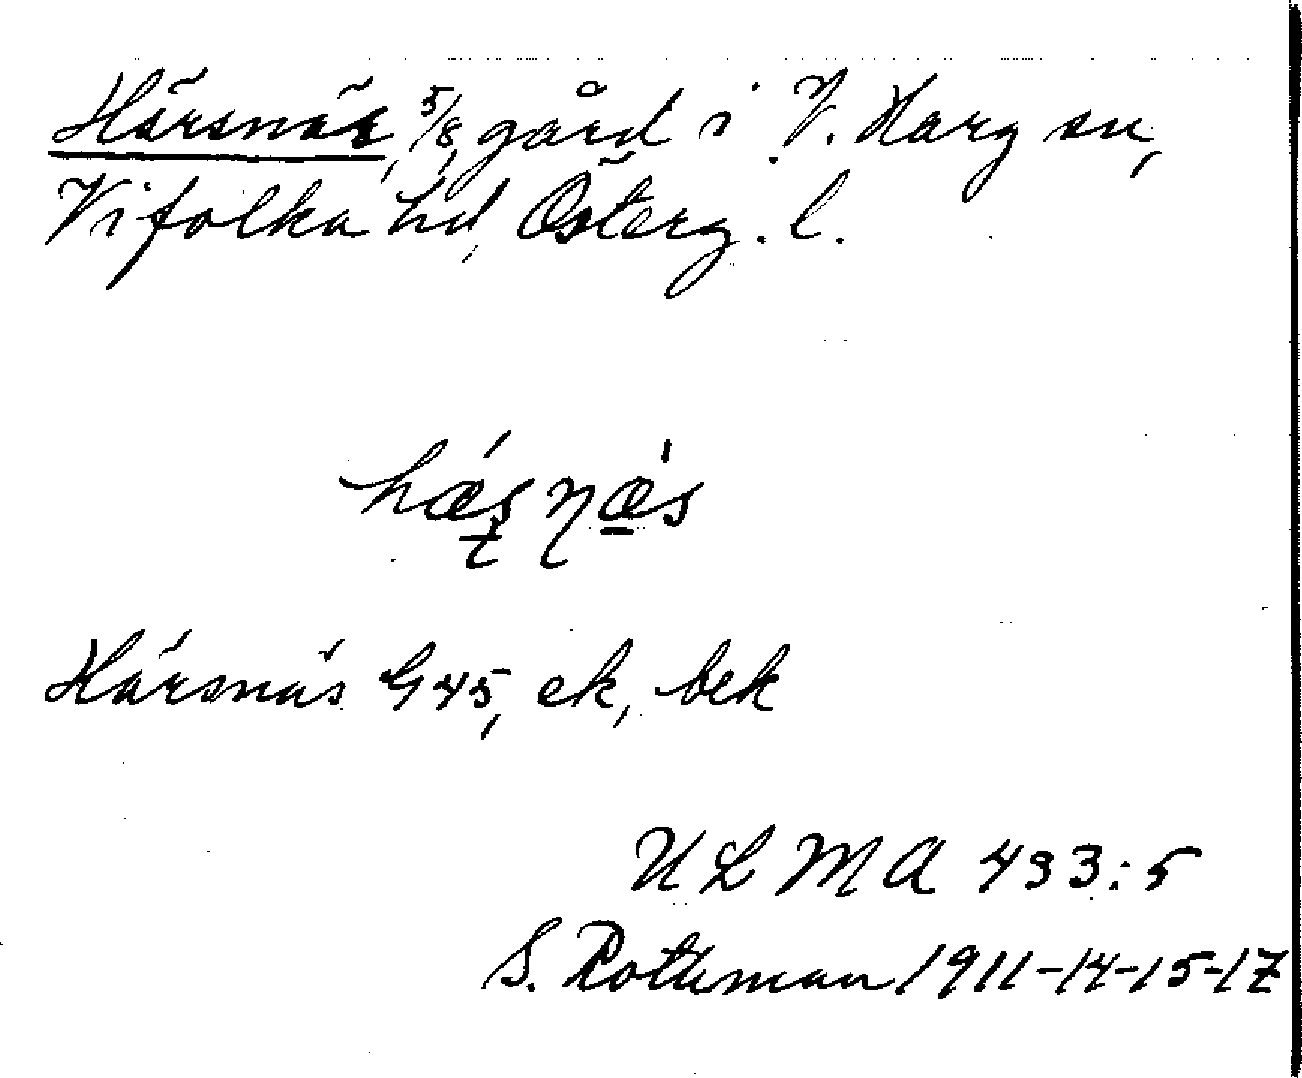 Härsnäs, 5/8 gård i V. Harg sn,
Vifolka hd, Österg. l.
Härsnäs G45, ek, bek
ULMA 433:5
S. Rothman 1911-14-15-17